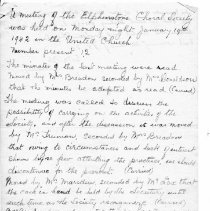 A meeting of the Elphinstone Choral Society
was held on Monday night January 19th
1942 in the United Church.
Number present 12
The minutes of the last meeting were read
Moved by Mrs Breadon seconded by Mrs Davidson
that the minutes be adopted as read (Carried)
The meeting was called to discuss the
possibility of carrying on the activities of the
society, and after the discussion it was moved
by Mr seconded by Mrs Breadon
that owing to circumstances and lack of interest
shown by so few attending the practices, we should
discontinue for the present (Carried)
Moved by seconded by Mrs that
the cash on hand be held by the Secretary until
such time as the Society reorganize (Carried)